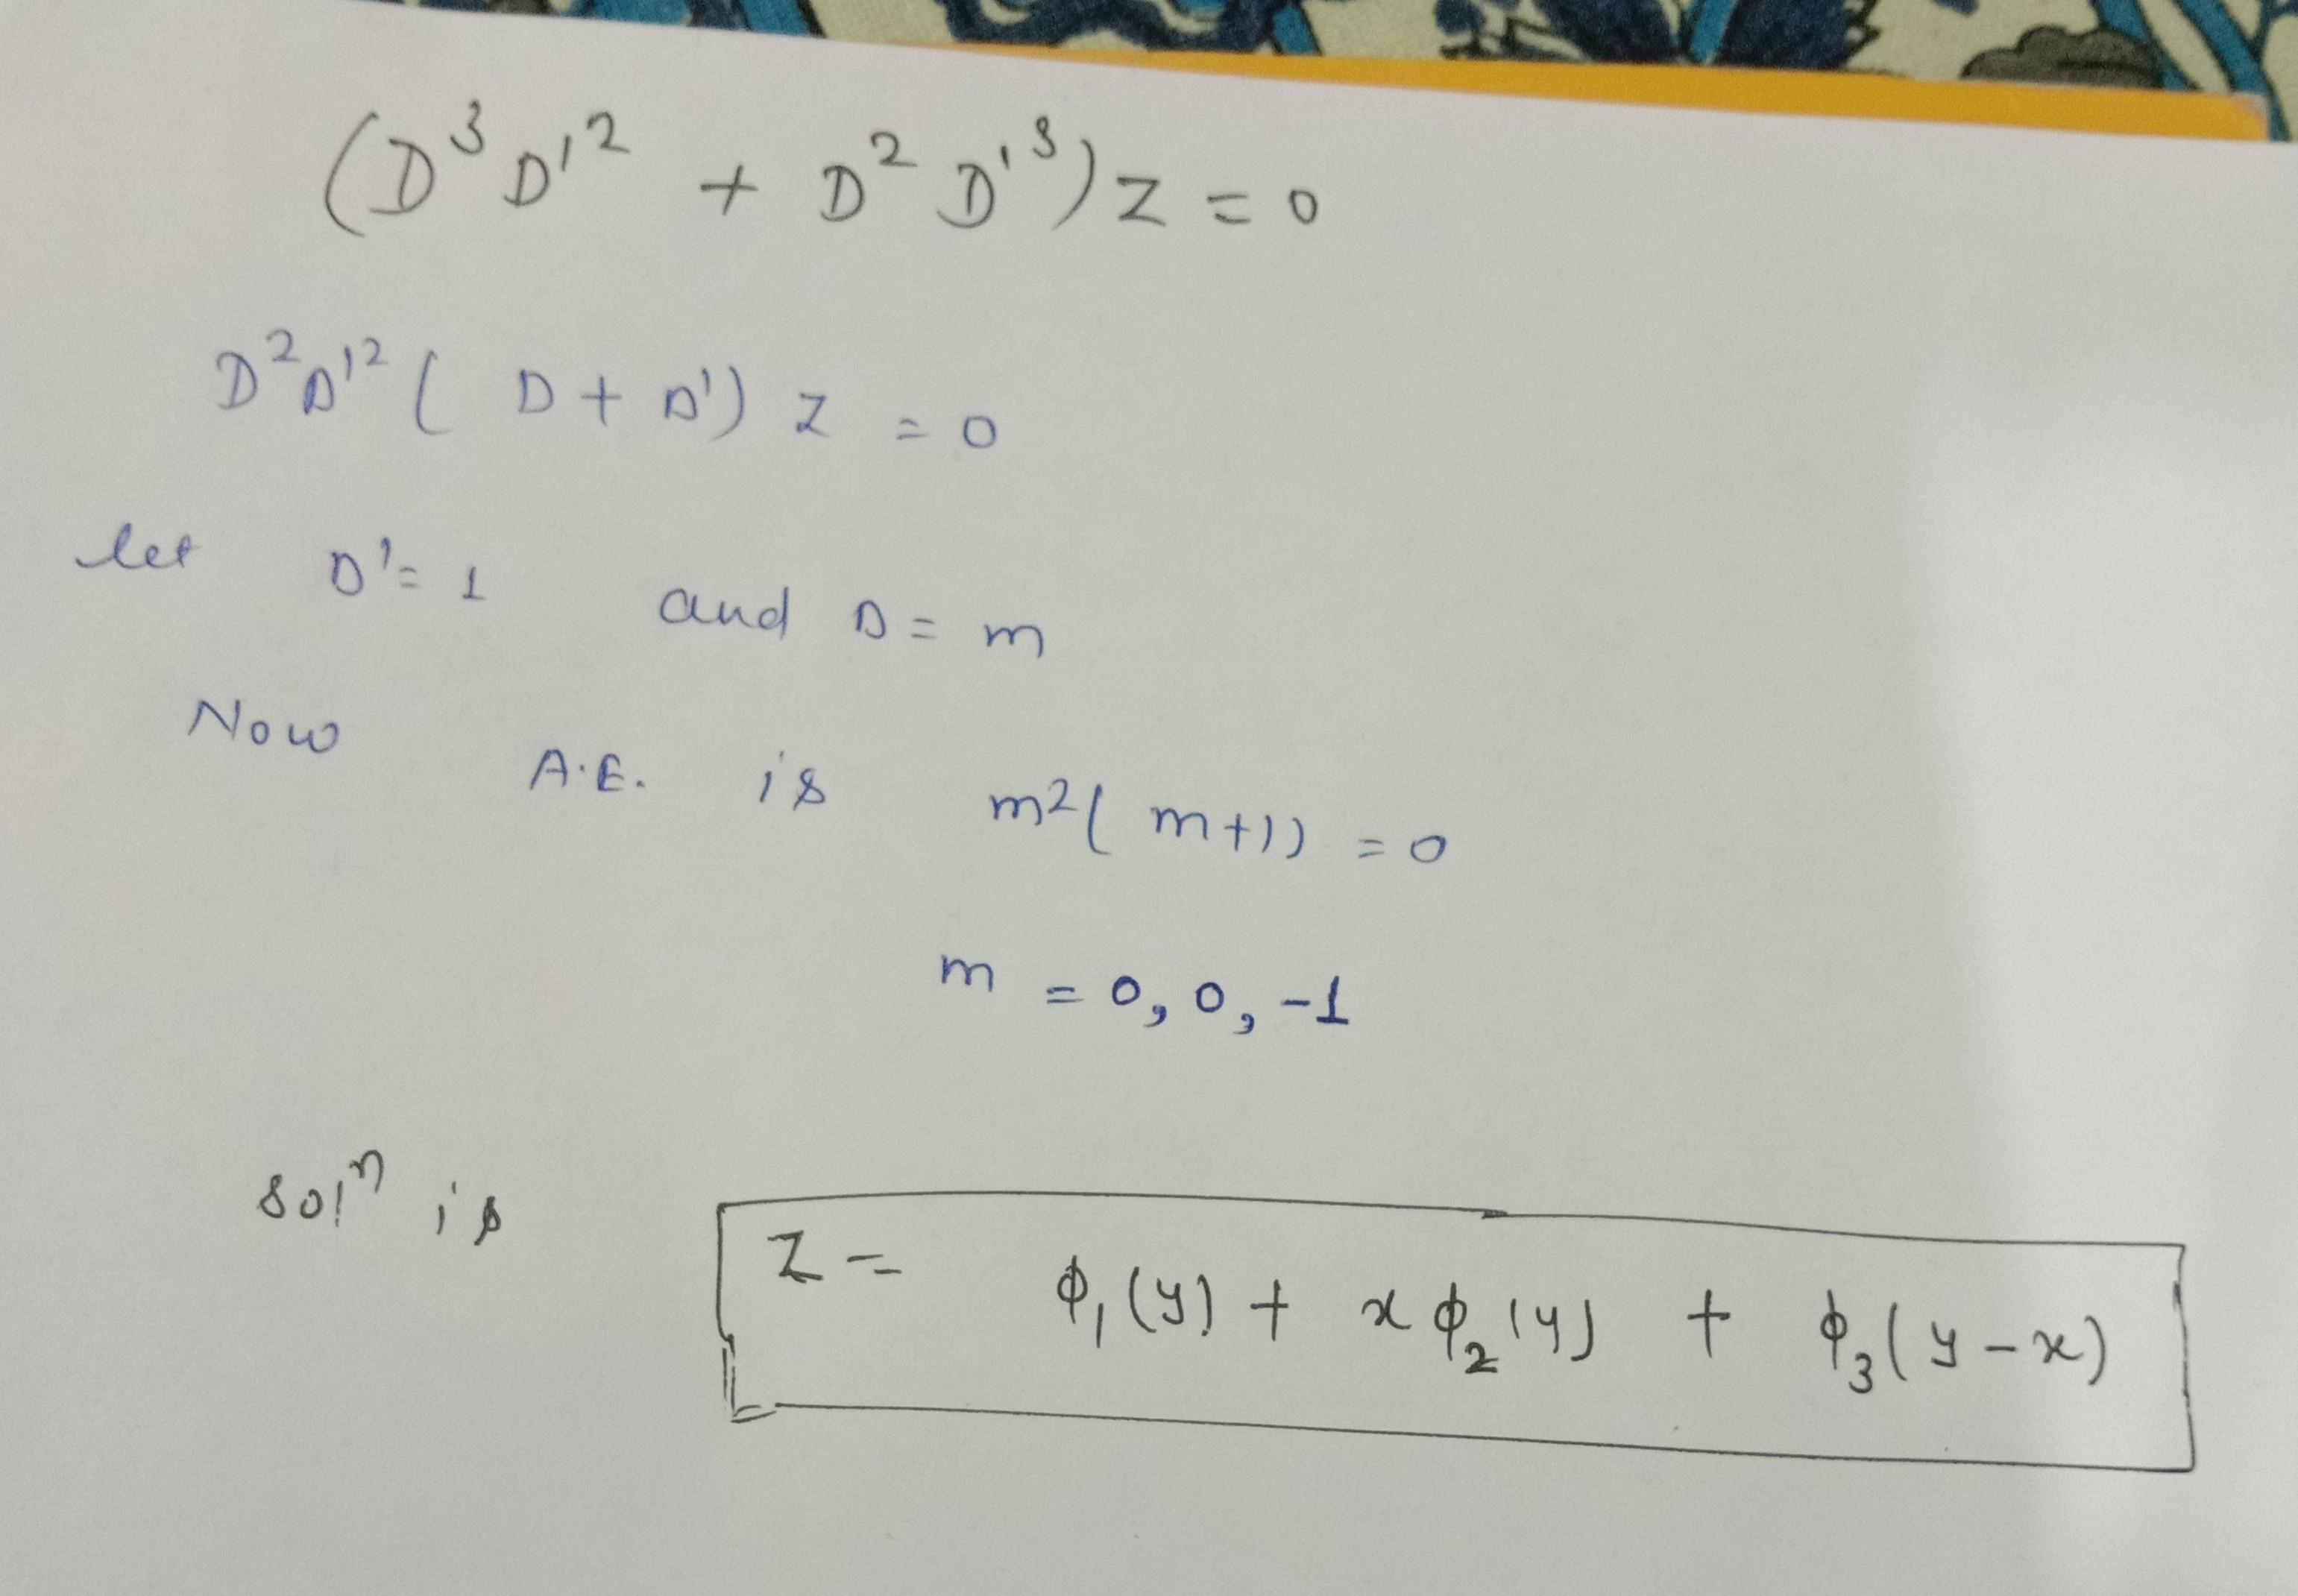 (D³ D'² + D² D'³) z = 0
D² D'² ( D + D') z = 0
let D' = 1 and D = m
Now A.E. is m² ( m+1) = 0
m = 0, 0, -1
solⁿ is z = ϕ₁(y) + x ϕ₂(y) + ϕ₃(y - x)